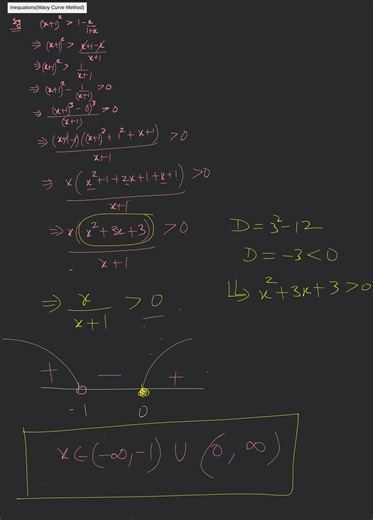 Inequations(Wavy Curve Method)
Eg (x+1)² > 1 - x/(1+x)
⇒ (x+1)² > (x+1-x)/(x+1)
⇒ (x+1)² > 1/(x+1)
⇒ (x+1)² - 1/(x+1) > 0
⇒ ((x+1)³ - (1)³)/(x+1) > 0
⇒ (x+1-1)((x+1)² + 1² + x+1)/(x+1) > 0
⇒ x(x²+1+2x+1+x+1)/(x+1) > 0
⇒ x(x²+3x+3)/(x+1) > 0
D = 3² - 12
D = -3 < 0
⇒ x²+3x+3 > 0
⇒ x/(x+1) > 0
+ — +
-1 0
x ∈ (-∞, -1) ∪ (0, ∞)